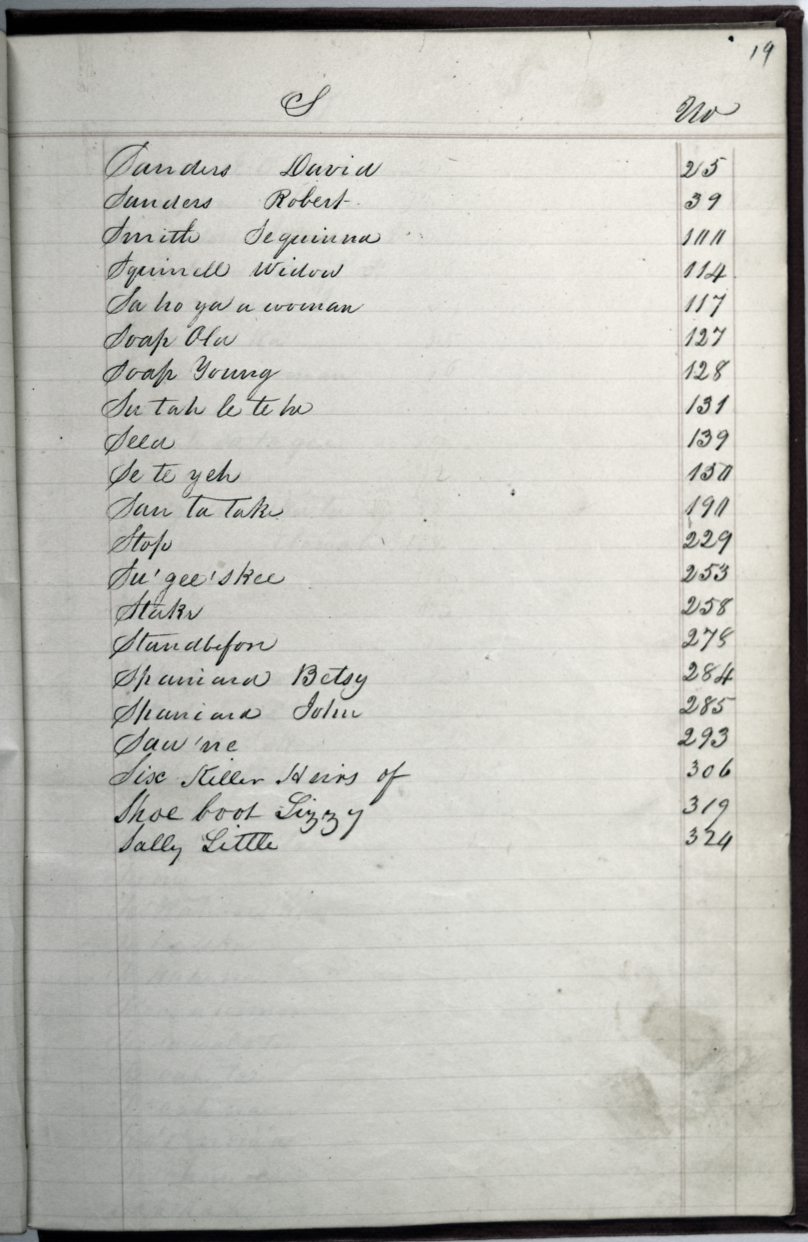 19
S No
Sanders David 25
Sanders Robert 39
Smith Sequinna 100
Squirrell Widow 114
Sa ho ya a woman 117
Soap Old 127
Soap Young 128
Su tah le te he 131
Seed 139
Se te yeh 150
San ta take 190
Stop 229
Su'gee'skee 253
Stake 258
Standbefore 278
Spaniard Betsy 284
Spaniard John 285
Saw'ne 293
Six Killer Heirs of 306
Shoe boot Lizzy 319
Sally Little 324